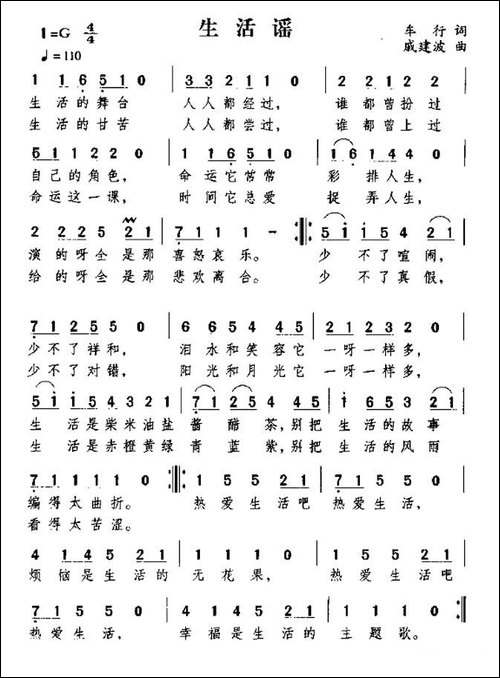 生活谣
1=G 4/4
车行 词
♩=110
戚建波 曲
1 1 6 5 1 0 | 3 3 2 1 1 0 | 2 2 1 2 2 1 |
生活的舞台 人人都经过, 谁都曾扮过
生活的甘苦 人人都尝过, 谁都曾上过
5 1 1 2 2 0 | 1 1 6 5 1 0 | 1 6 1 4 4 0 |
自己的角色, 命运它常常 彩排人生,
命运这一课, 时间它总爱 捉弄人生,
2 2 2 5 5 2 1 | 7 1 1 1 - :‖: 5 1 1 5 4 2 1 |
演的呀全是那 喜怒哀乐。 少不了喧闹,
给的呀全是那 悲欢离合。 少不了真假,
7 1 2 5 5 0 | 6 6 5 4 4 5 | 2 1 2 3 2 0 |
少不了祥和, 泪水和笑容它 一呀一样多,
少不了对错, 阳光和月光它 一呀一样多,
5 1 1 5 4 2 1 | 7 1 2 5 5 4 5 | 1 6 5 3 2 1 |
生活是柴米油盐 酱醋茶,别把 生活的故事
生活是赤橙黄绿 青蓝紫,别把 生活的风雨
7 1 1 1 0 :‖: 1 5 5 2 1 | 7 1 5 5 0 |
编得太曲折。 热爱生活吧 热爱生活,
看得太苦涩。
4 1 4 5 2 1 | 1 4 4 0 | 1 5 5 2 1 |
烦恼是生活的 无花果, 热爱生活吧
7 1 5 5 0 | 2 2 2 5 2 1 | 7 1 1 0 :‖
热爱生活, 幸福是生活的 主题歌。